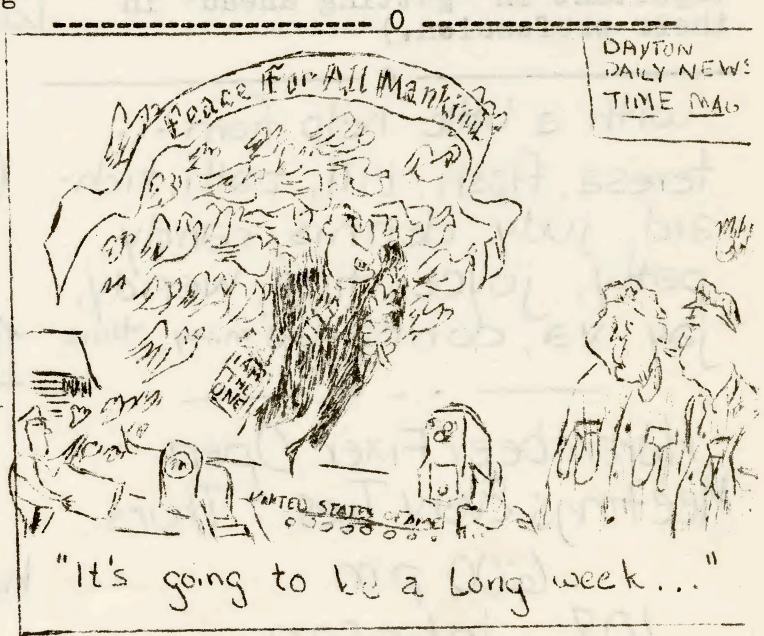 DAYTON
DAILY NEWS
TIME MAG
Peace For All Mankind
I AM
THE
ONE
UNITED STATES OF AME
"It's going to be a Long week..."